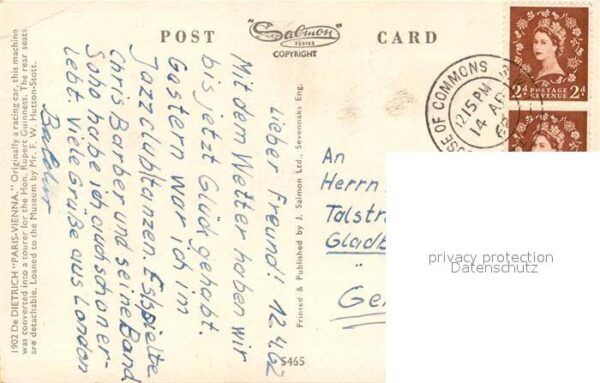 POST CARD
The
Salmon
SERIES
COPYRIGHT
1902 De DIETRICH "PARIS-VIENNA." Originally a racing car, this machine
was converted into a tourer for the Hon. Rupert Guinness. The rear seats
are detachable. Loaned to the Museum by Mr. F. W. Hutton-Stott.
Lieber Freund! 12.4.62
Mit dem Wetter haben wir
bis jetzt Glück gehabt.
Gestern war ich im
Jazzclub tanzen. Es spielte
Chris Barber und seine Band
Soho habe ich auch schon er-
lebt. Viele Grüße aus London
Printed & Published by J. Salmon Ltd., Sevenoaks Eng.
5465
An
Herrn
Talstr
Gladb
Ge
HOUSE OF COMMONS
12 15 PM
14 AP
POSTAGE
REVENUE
2d 2d
privacy protection
Datenschutz